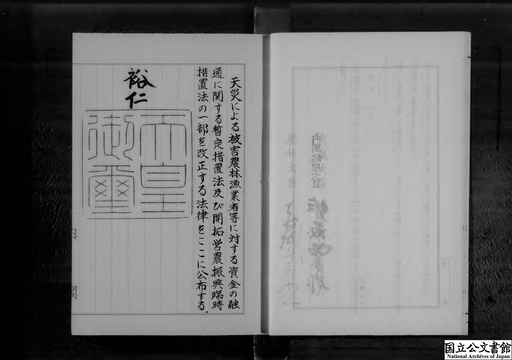 天災による被害農林漁業者等に対する資金の融
通に関する暫定措置法及び開拓営農振興臨時
措置法の一部を改正する法律をここに公布する。
裕仁
天皇
御璽
国立公文書館
National Archives of Japan